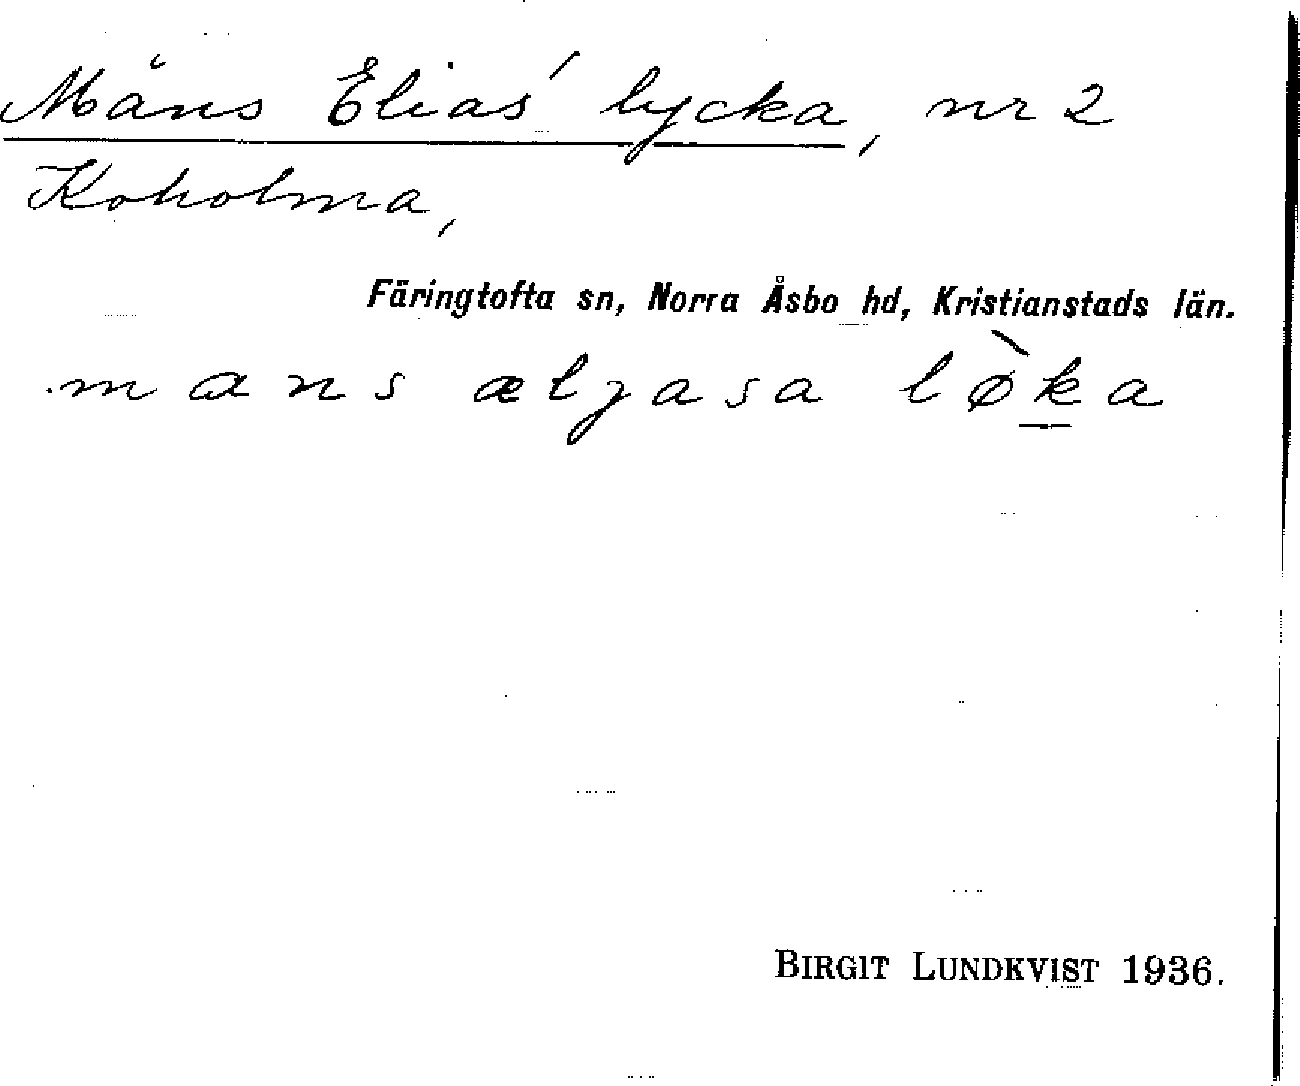 Måns Elias' lycka, nr 2
Koholma,
Färingtofta sn, Norra Åsbo hd, Kristianstads län.
mans æljasa lø̀ka
BIRGIT LUNDKVIST 1936.